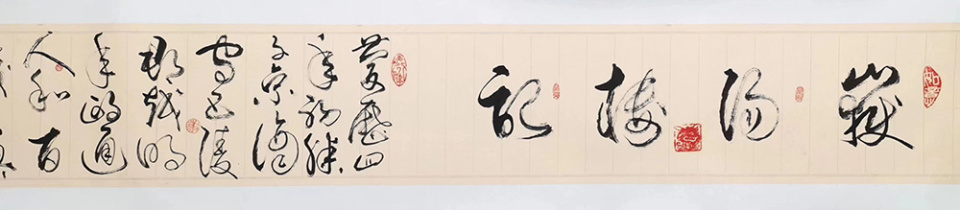 嶽陽樓記
慶曆四
年春滕
子京謫
守巴陵
郡越明
年政通
人和百